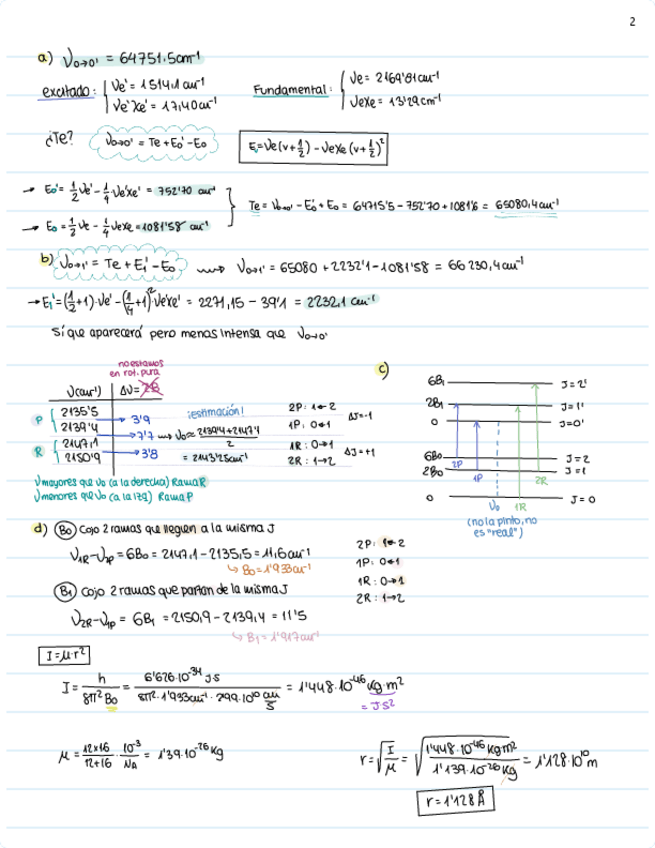 2
a) ν0→0' = 64751.5cm⁻¹
excitado: { νe' = 1514,1 cm⁻¹
νe'Xe' = 17,40cm⁻¹
Fundamental: { νe = 2169'81cm⁻¹
νeXe = 13'29cm⁻¹
¿Te? ν0→0' = Te + E0' - E0
E = νe(v+1/2) - νeXe(v+1/2)²
→ E0' = 1/2 νe' - 1/4 νe'Xe' = 752'70 cm⁻¹
→ E0 = 1/2 νe - 1/4 νeXe = 1081'58 cm⁻¹
Te = ν0→0' - E0' + E0 = 64715'5 - 752'70 + 1081'6 = 65080,4cm⁻¹
b) ν0→1' = Te + E1' - E0 ⟿ ν0→1' = 65080 + 2232'1 - 1081'58 = 66230,4cm⁻¹
→ E1' = (1/2+1)·νe' - (1/4+1)²νe'Xe' = 2271,15 - 39'1 = 2232,1 cm⁻¹
Sí que aparecerá pero menos intensa que ν0→0'
no estamos
en rot. pura
ν(cm⁻¹) Δν=2B
P { 2135'5
2139'4
R { 2147,1
2150'9
3'9
7'7 ⟿ ν0 ≈ (2139'4+2147'4)/2
3'8
¡estimación!
= 2143'25cm⁻¹
2P: 1←2
1P: 0←1
ΔJ=-1
1R: 0→1
2R: 1→2
ΔJ=+1
ν mayores que ν0 (a la derecha) Rama R
ν menores que ν0 (a la izq) Rama P
c)
6B1 J=2'
2B1 J=1'
0 J=0'
6B0 J=2
2B0 J=1
0 J=0
2P 1P ν0 1R 2R
(no la pinto, no
es "real")
d) B0 Cojo 2 ramas que lleguen a la misma J
ν1R-ν2P = 6B0 = 2147,1 - 2135,5 = 11,6cm⁻¹
↳ B0=1'933cm⁻¹
B1 Cojo 2 ramas que partan de la misma J
ν2R-ν1P = 6B1 = 2150,9 - 2139,4 = 11'5
↳ B1=1'917cm⁻¹
2P: 1←2
1P: 0←1
1R: 0→1
2R: 1→2
I=μ·r²
I = h/(8π²B0) = (6'626·10⁻³⁴ J·s)/(8π²·1'933cm⁻¹·299·10¹⁰ cm/s) = 1'448·10⁻⁴⁶ kg·m²
= J·s²
μ = (12×16)/(12+16) · 10⁻³/NA = 1'39·10⁻²⁶ kg
r = √(I/μ) = √(1'448·10⁻⁴⁶ kg m²/1'139·10⁻²⁶ kg) = 1'128·10¹⁰ m
r=1'128 Å